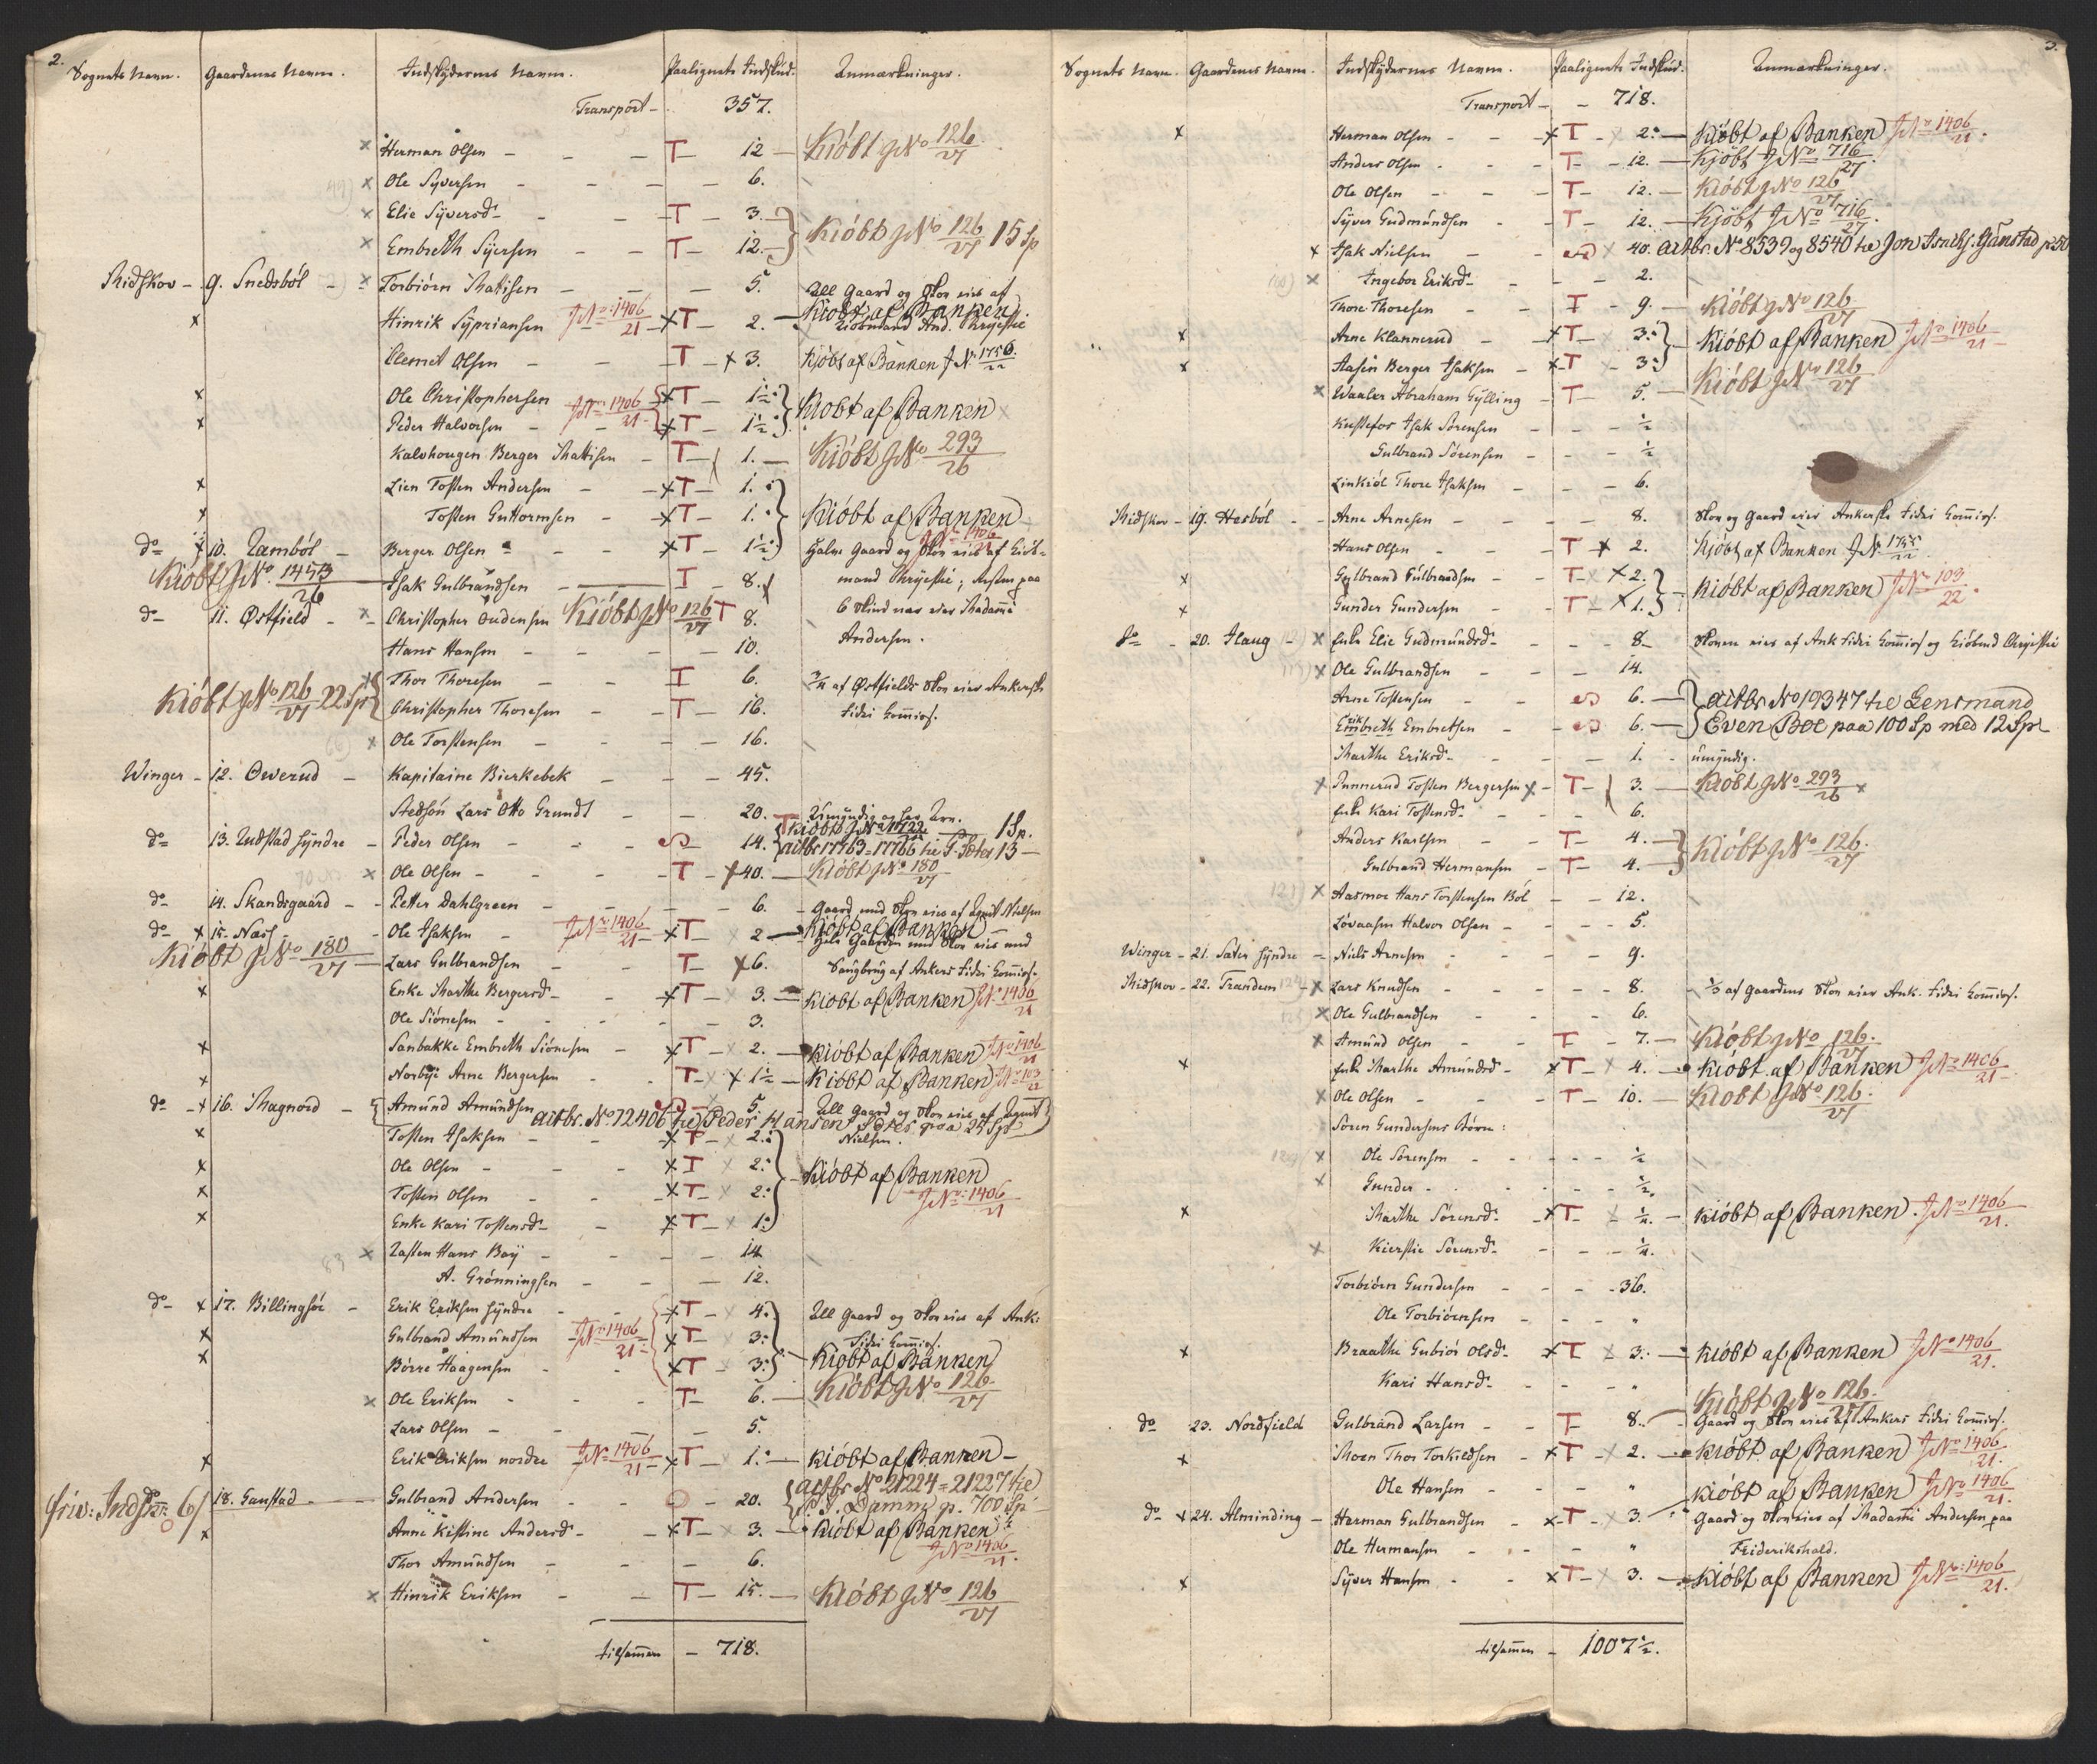 2.
Sognets Navn. Gaardenes Navne. Indskydernes Navne. Paalignede Indskud. Anmærkninger.
Transport - 357.
Herman Olsen - T - 12 - Kiöbt J No 126/27
Ole Syversen - 6.
Elie Syversd. - T - 3.
Embreth Syversen - T - 12. Kiöbt J No 126/27 15 Sp
Midskov - 9. Snedsböl - Torbiörn Mathisen - 5. All Gaard og Skov eies af
Hinrik Sypriansen JNo 1406/21 T - 2. Kiöbt af Banken
Clemet Olsen - T - 3. Kjöbt af Banken J No 1756/22
Ole Christophersen JNo 1406/21 T - 1½ Kiobt af Banken
Peder Halvorsen - T - 1½
Kalvhougen Berger Mathisen - T - 1. - Kiöbt J No 293/26
Lien Tosten Andersen - T - 1.
Tosten Guttormsen - T - 1. Kiöbt af Banken
do 10. Lamböl - Berger Olsen - T - 1½ JNo 1406/21 Halve Gaard og Skov eies af Kiöb-
Kiöbt J No 1453/26 Isak Gulbrandsen - T - 8. mand Chrystie; Resten paa
do 11. Østfield - Christopher Oudensen Kiöbt J No 126/27 T 8. 6 Skind nær eier Madame
Hans Hansen - 10. Andersen.
Thor Thoresen - T 6. ¾ af Østfields Skov eier Ankerske
Kiöbt J No 126/27 22 Sp Christopher Thoresen - T - 16. Fidei Commiss.
Ole Torstensen - 16.
Winger - 12. Overud - Kapitaine Bierkebek - 45.
Stedsön Lars Otto Grundt - 20. Umyndig
do 13. Audstad Syndre - Peder Olsen - 14. 13 -
Ole Olsen - T - 40. - Kiöbt J No 180/27
do 14. Skandsgaard - Petter Dahlgreen - 6. - Gaard med Skov eies af Agent Nielsen
do 15. Næss - Ole Isaksen - JNo 1406/21 T - 2 - Kiöbt af Banken
Hele Gaarden med Skov eies med
Kiöbt J No 180/27 Lars Gulbrandsen - T - 6. Saugbrug af Ankers Fidei Commiss.
Enke Marthe Bergersd. - T - 3. - Kiobt af Banken JNo 1406/21
Ole Siönesen - 3.
Sanbakke Embreth Siönesen - T - 2. - Kiöbt af Banken JNo 1406/21
Norbye Arne Bergersen - T - 1½ - Kiöbt af Banken JNo 103/22
do 16. Magnord - Amund Amundsen 5. - All Gaard og Skov eies af Agent
actbr. No 12406 Peder Hansen paa 25 Spd
Tosten Isaksen - T - 2. Nielsen.
Ole Olsen - T 2. Kiöbt af Banken
Tosten Olsen - T - 2. JNo 1406/21
Enke Kari Tostensd. - T - 1.
Hans Boy - 14
A. Grönningsen - 12.
do 17. Billingsöe - Erik Eriksen Syndre - T - 4. All Gaard og Skov eies af Ank.
Gulbrand Amundsen - JNo 1406/21 T - 3. Fidei Commiss.
Börre Haagensen - T - 3. Kiöbt af Banken
Ole Eriksen - T - 6. - Kiöbt J No 126/27
Lars Olsen - 5.
Erik Eriksen nordre JNo 1406/21 T - 1. - Kiöbt af Banken -
do 18. Gaustad - Gulbrand Andersen - 20. actbr No 21224 = 21227
Damm p. 700 Sp
Anne Kistine Andersd. - T - 3. - Kiöbt af Banken
JNo 1406/21
Thor Amundsen - 6.
Hinrik Eriksen - T - 15. - Kiöbt J No 126/27
tilsammen - 718.
3.
Sognets Navn. Gaardenes Navne. Indskydernes Navne. Paalignede Indskud. Anmærkninger.
Transport - 718.
Herman Olsen - T - 2. - Kiöbt af Banken JNo 1406/21
Anders Olsen - T - 12. - Kjöbt J No 716/27
Ole Olsen - T - 12. - Kiöbt J No 126/27
Syver Gudmundsen - T - 12. - Kjöbt J No 716/27
Isak Nielsen - 40. actbr. No 8539 og 8540 Jon Gånstad
Ingebor Eriksd. - 2.
Thore Thoresen - T - 9. - Kiöbt J No 126/27
Arne Klannerud - T - 3. Kiöbt af Banken JNo 1406/21
Berger Isaksen - T - 3.
Waaler Abraham Gylling - T - 5. - Kiöbt J No 126/27
Isak Sörensen - ½
Gulbrand Sörensen - ½
Thore Isaksen - 6.
Midskov - 19. Hesböl - Arne Arnesen - 8. Skov og Gaard eier Ankerske Fidei Commiss.
Hans Olsen - T 2. Kjöbt af Banken J No 1755/22
Gulbrand Gulbrandsen - T - 2. Kiöbt af Banken JNo 103/22
Gunder Gundersen - T - 1.
do - 20. Haug - Enke Elie Gudmundsd. - 8 - Skoven eies af Ank Fidei Commiss og Kiöbmd Chrystie
Ole Gulbrandsen - 14.
Arne Tostensen - 6. - actbr No 19347 Lensmand
Embreth Embretsen - 6. - Even Boe paa 100 Sp med 12 Spd
Marthe Eriksd. - 1. - umyndig.
Tosten Bergersen - T - 3. - Kiöbt J No 293/26
Enke Kari Tostensd. - 6.
Anders Karlsen - T - 4. - Kiöbt J No 126/27
Gulbrand Hermansen - T - 4.
Aasmoe Hans Torstensen Böl - 12.
Lövaasen Halvor Olsen - 5.
Winger - 21. Sæter Syndre - Niels Arnesen - 9.
Midskov - 22. Trandem - Lars Knudsen - 8. - ⅓ af Gaardens Skov eier Ank. Fidei Commiss.
Ole Gulbrandsen - 6.
Amund Olsen - T - 7. - Kiöbt J No 126/27
Enke Marthe Amundsd. - T - 4. - Kiöbt af Banken JNo 1406/21
Ole Olsen - T - 10. - Kiobt J No 126/27
Sören Gundersens Börn:
Ole Sörensen - ½
Gunder - ½
Marthe Sörensd. - T - ¼ - Kiöbt af Banken JNo 1406/21
Kierstie Sörensd. - ¼
Torbiörn Gundersen - 36.
Ole Torbiörnsen - "
Braathe Gubiör Olsd. - T - 3. - Kiöbt af Banken JNo 1406/21
Kari Hansd. - "
Kiöbt J No 126/27
do 23. Nordfield Gulbrand Larsen - T - 8. - Gaard og Skov eies af Ankers Fidei Commiss.
Moen Thor Torkieldsen - T - 2. - Kiöbt af Banken JNo 1406/21
Ole Hansen - "
Kiöbt af Banken JNo 1406/21
do 24. Alminding - Herman Gulbrandsen - T - 3. Gaard og Skov eies af Madame Andersen paa
Ole Hermansen - " Friderikshald.
Syver Hansen - T - 3. - Kiöbt af Banken JNo 1406/21
tilsammen - 1007½.